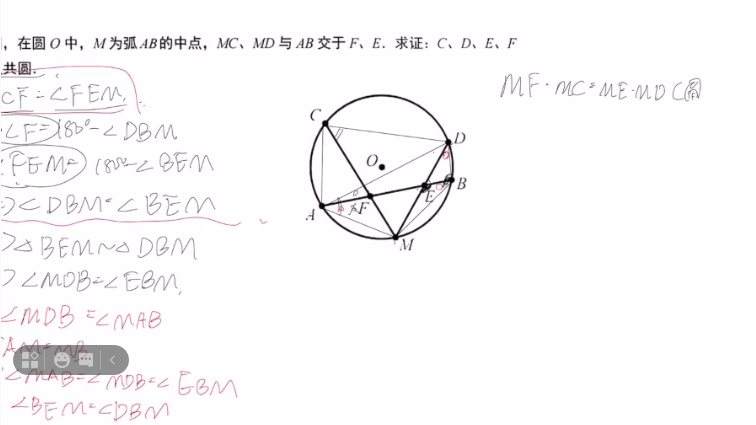 ，在圆 O 中，M 为弧 AB 的中点，MC、MD 与 AB 交于 F、E．求证：C、D、E、F
共圆．
CF = ∠FEM,
∠F = 180° - ∠DBM
FEM = 180° - ∠BEM
=> ∠DBM = ∠BEM
> △BEM ∽ △DBM
> ∠MDB = ∠EBM,
∠MDB = ∠MAB
AM = MB
∠MAB = ∠MDB = ∠EBM
∠BEM = ∠DBM
MF · MC = ME · MD
C
D
O
A
F
E
B
M